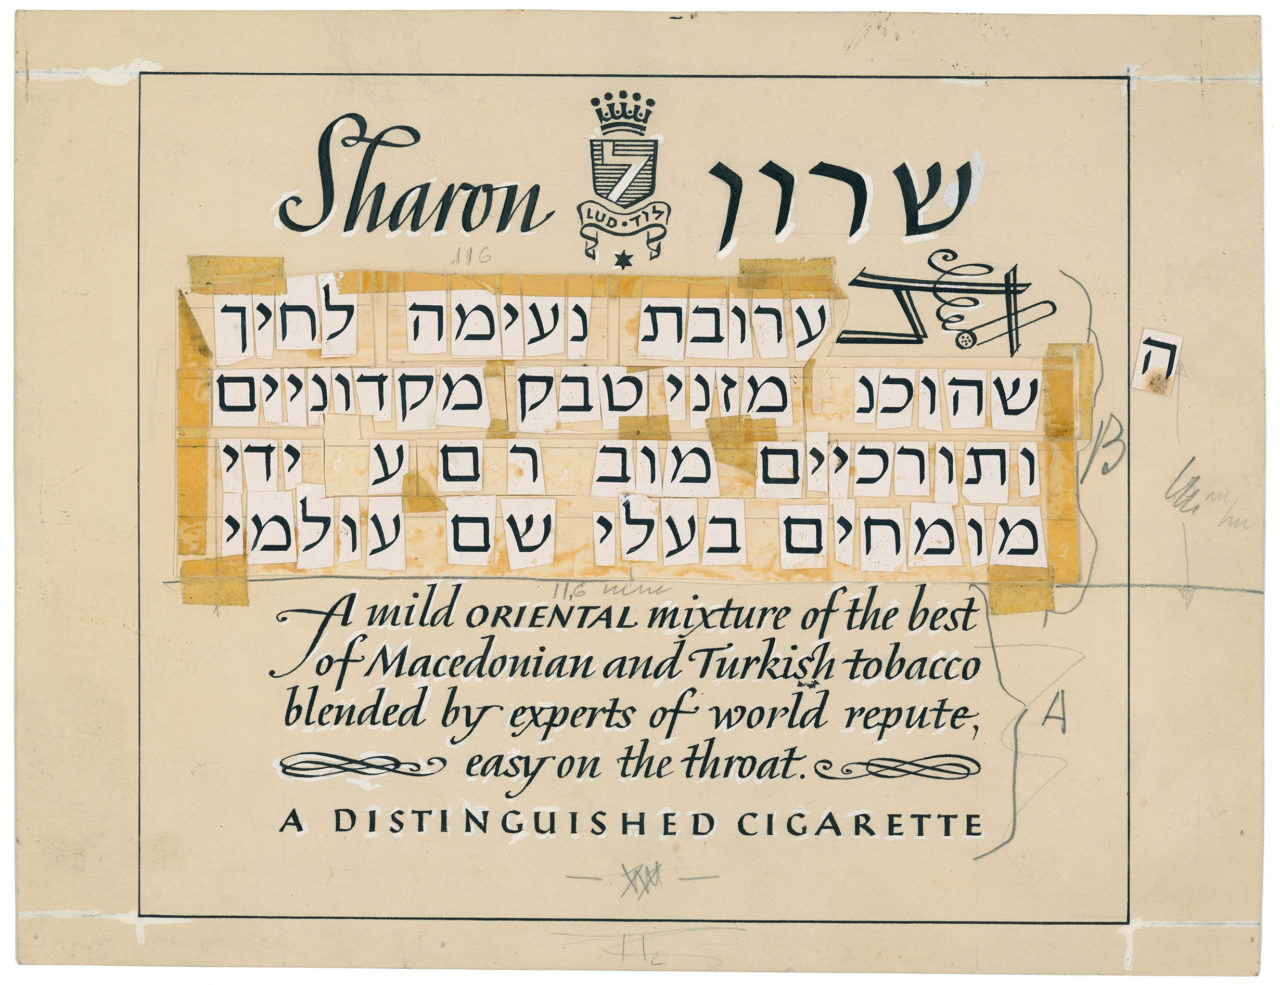 Sharon שרון
LUD · לוד
116
תערובת נעימה לחיך
ה
שהוכנ מזני טבק מקדוניים
ותורכיים מוב ר ם ע ידי
B
מומחים בעלי שם עולמי
116
A mild ORIENTAL mixture of the best
of Macedonian and Turkish tobacco
blended by experts of world repute,
A
easy on the throat.
A DISTINGUISHED CIGARETTE